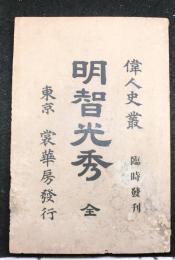 偉人史叢
臨時發刊
明智光秀 全
東京 裳華房發行